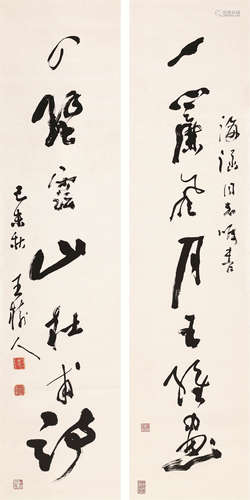 海涵同志嘱書
一簾風月王維畫
四壁雲山杜甫詩
己未秋 王樹人